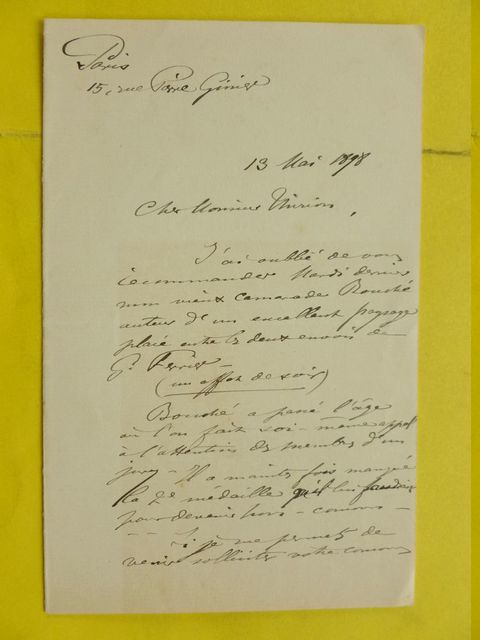 Paris
15, rue Pierre Ginier
13 Mai 1898
Cher Monsieur Thirion,
J'ai oublié de vous
recommander Mardi dernier
mon vieux camarade Bouché
auteur d'un excellent paysage
placé entre les deux envois de
G. Ferrier
(un effet de soir)
Bouché a passé l'âge
où l'on fait soi-même appel
à l'attention des membres d'un
jury - Il a maintes fois manqué
la 2e médaille qu'il lui faudrait
pour devenir hors-concours -
- - Si je me permets de
venir solliciter votre concours